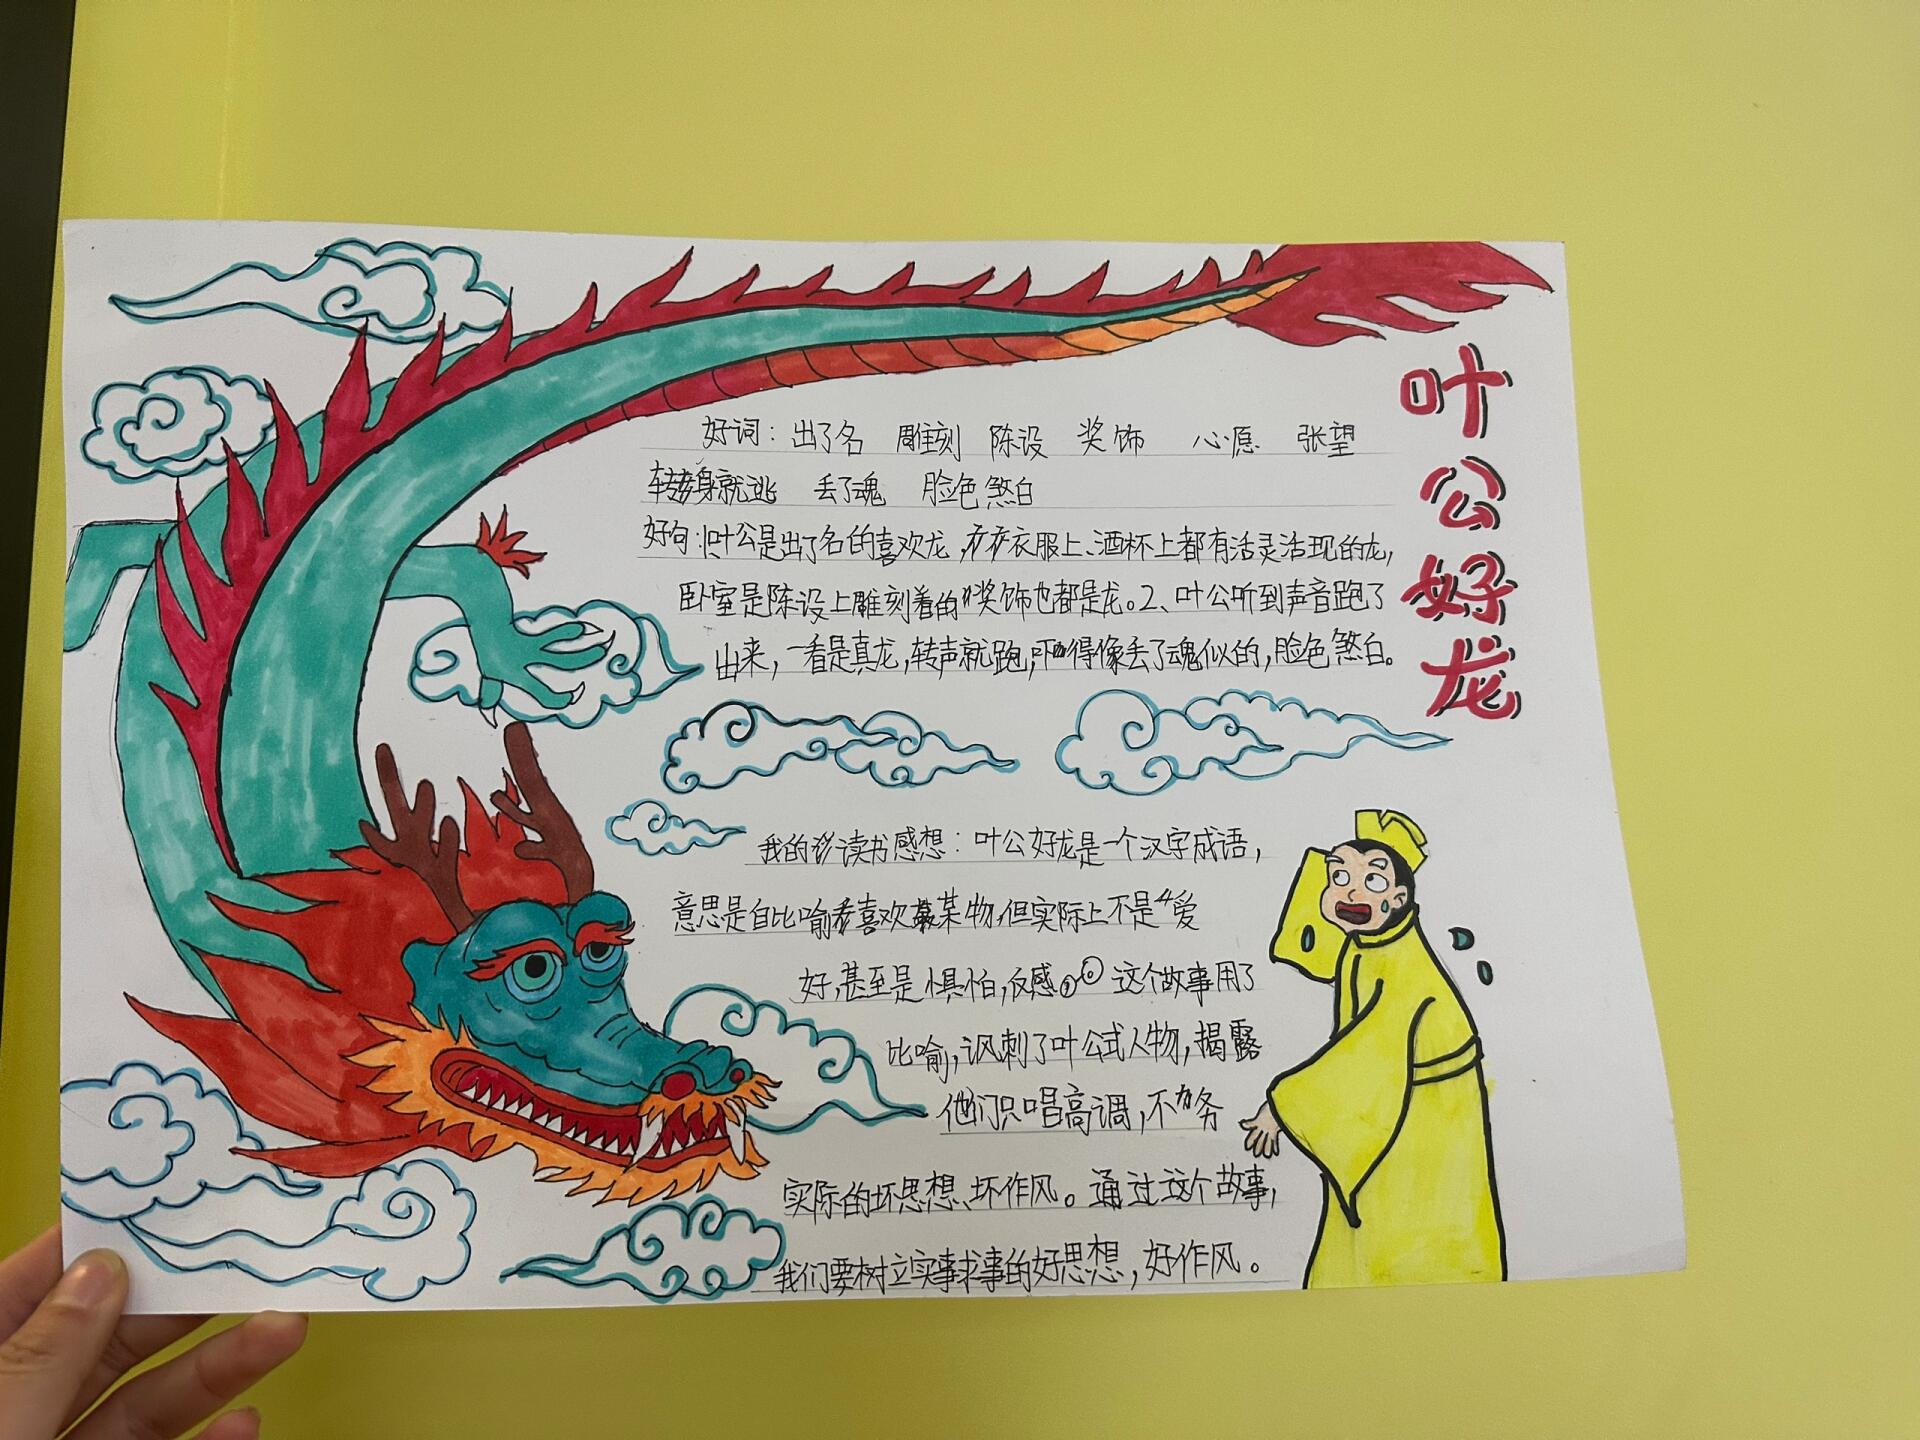 叶公好龙
好词：出了名 雕刻 陈设 奖饰 心愿 张望
转身就逃 丢了魂 脸色煞白
好句：1、叶公是出了名的喜欢龙，衣服上、酒杯上都有活灵活现的龙，
卧室是陈设上雕刻着的奖饰也都是龙。2、叶公听到声音跑了
出来，一看是真龙，转声就跑，吓得像丢了魂似的，脸色煞白。
我的读书感想：叶公好龙是一个汉字成语，
意思是自比喻喜欢某物，但实际上不是“爱
好，甚至是惧怕，反感。这个故事用了
比喻，讽刺了叶公式人物，揭露
他们只唱高调，不务
实际的坏思想、坏作风。通过这个故事，
我们要树立实事求事的好思想，好作风。